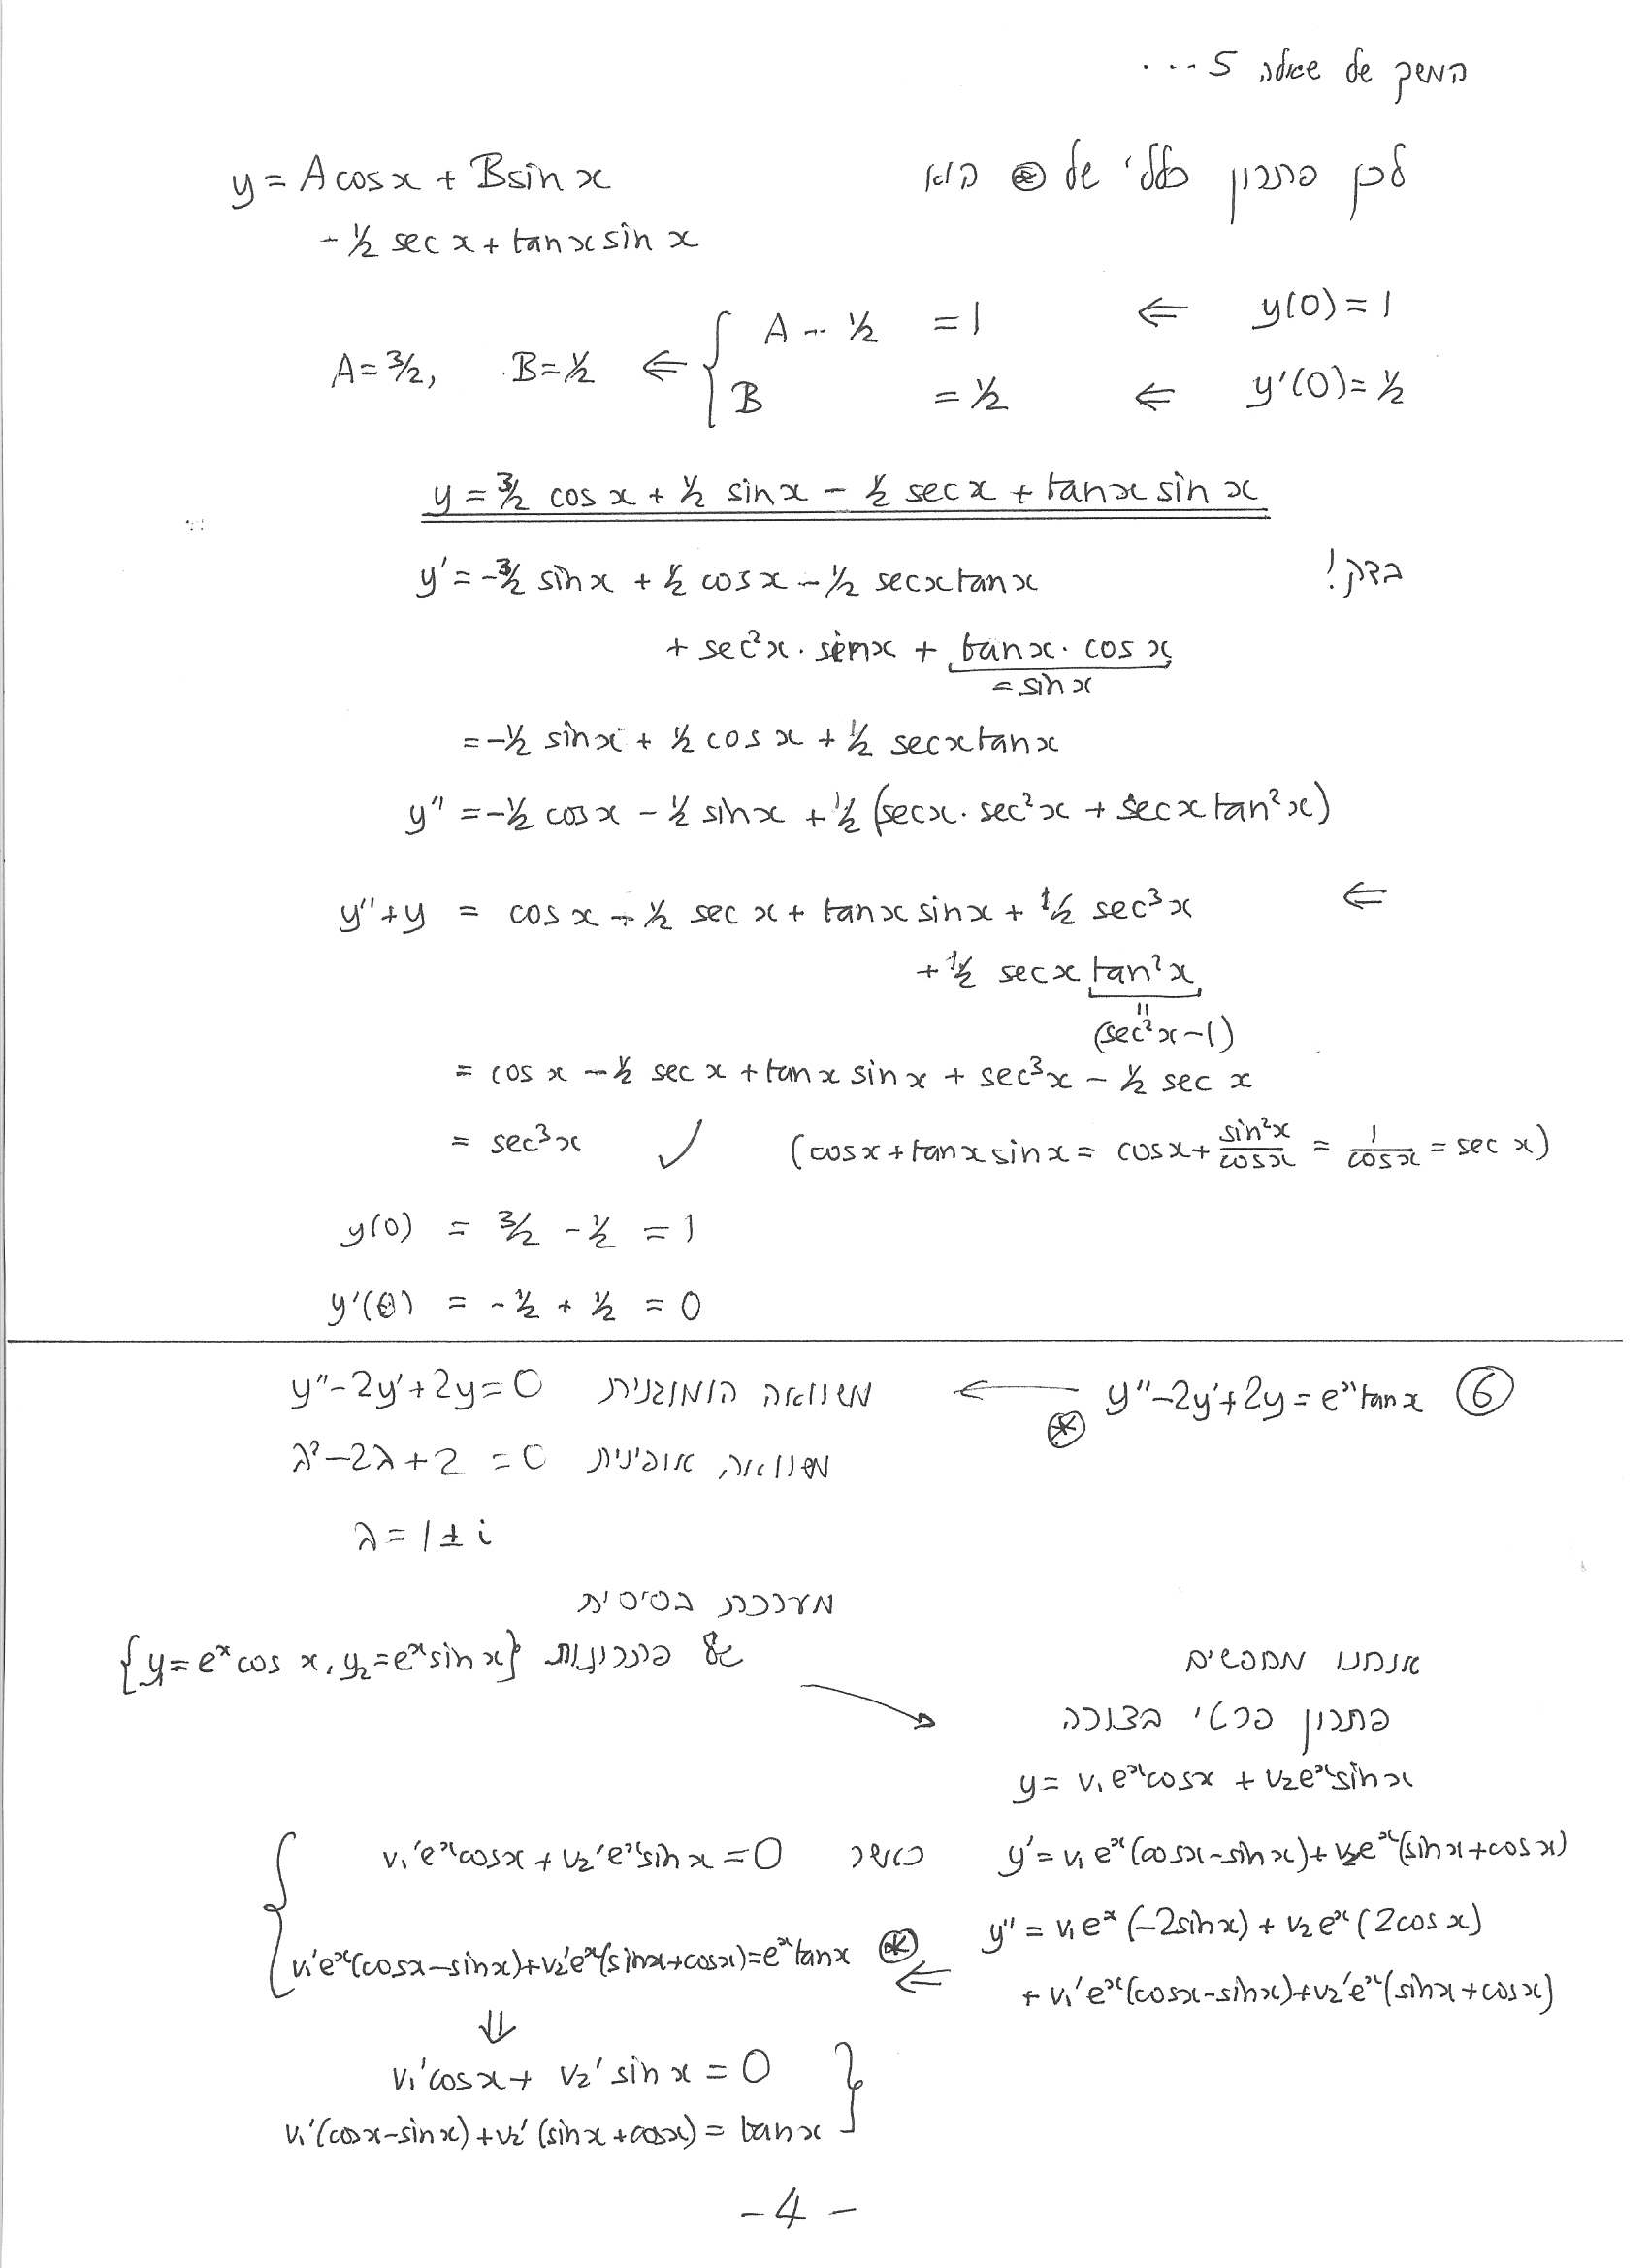 המשך של שאלה 5 ...
לכן פתרון כללי של ⊛ הוא y = A cos x + B sin x
- ½ sec x + tan x sin x
y(0) = 1 ⇐ A - ½ = 1
y'(0) = ½ ⇐ B = ½
⇐ A = 3/2, B = ½
y = 3/2 cos x + ½ sin x - ½ sec x + tan x sin x
בדק! y' = -3/2 sin x + ½ cos x - ½ sec x tan x
+ sec²x · sin x + tan x · cos x
= sin x
= -½ sin x + ½ cos x + ½ sec x tan x
y'' = -½ cos x - ½ sin x + ½ (sec x · sec²x + sec x tan²x)
⇐ y'' + y = cos x - ½ sec x + tan x sin x + ½ sec³x
+ ½ sec x tan²x
=
(sec²x - 1)
= cos x - ½ sec x + tan x sin x + sec³x - ½ sec x
= sec³x ✓ (cos x + tan x sin x = cos x + sin²x/cos x = 1/cos x = sec x)
y(0) = 3/2 - ½ = 1
y'(0) = -½ + ½ = 0
⑥ y'' - 2y' + 2y = eˣ tan x ⊛ ← משוואה הומוגנית y'' - 2y' + 2y = 0
משוואה אופינית λ² - 2λ + 2 = 0
λ = 1 ± i
מערכת בסיסית
של פתרונות {y = eˣ cos x, y₂ = eˣ sin x}
אנחנו מחפשים
פתרון פרטי בצורה
y = v₁eˣ cos x + v₂eˣ sin x
y' = v₁eˣ(cos x - sin x) + v₂eˣ(sin x + cos x) כאשר v₁'eˣ cos x + v₂'eˣ sin x = 0
y'' = v₁eˣ(-2 sin x) + v₂eˣ(2 cos x)
+ v₁'eˣ(cos x - sin x) + v₂'eˣ(sin x + cos x)
⊛ ⇐ v₁'eˣ(cos x - sin x) + v₂'eˣ(sin x + cos x) = eˣ tan x
⇓
v₁' cos x + v₂' sin x = 0
v₁'(cos x - sin x) + v₂'(sin x + cos x) = tan x
- 4 -